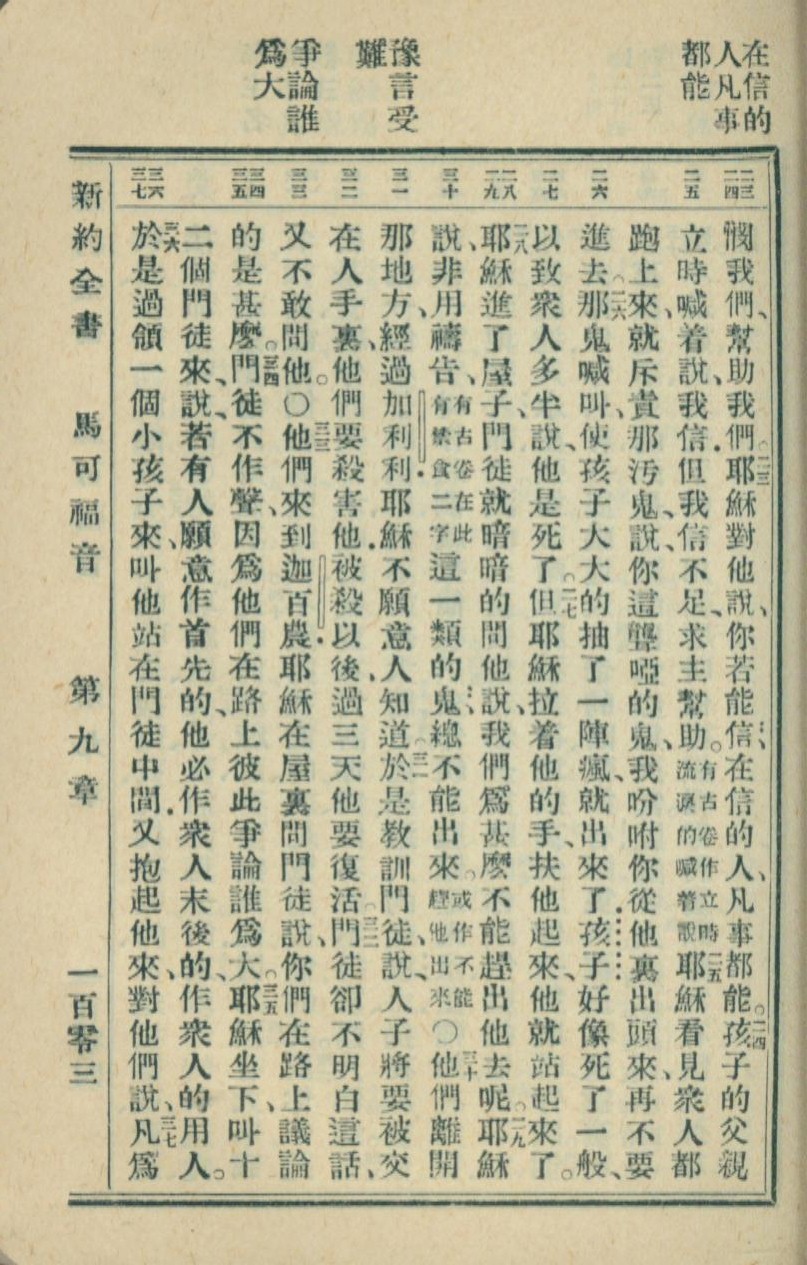 在信的
人凡事
都能
豫言受
難
爭論誰
爲大
二三
二四
二五
二六
二七
二八
二九
三十
三一
三二
三三
三四
三五
三六
三七
憫我們、幫助我們。二三耶穌對他說、你若能信、在信的人、凡事都能。二四孩子的父親
立時喊着說、我信但我信不足、求主幫助。有古卷作立時流淚的喊着說二五耶穌看見衆人都
跑上來、就斥責那污鬼、說、你這聾啞的鬼、我吩咐你從他裏出頭來、再不要
進去。二六那鬼喊叫、使孩子大大的抽了一陣瘋、就出來了。孩子好像死了一般、
以致衆人多半說、他是死了。二七但耶穌拉着他的手、扶他起來、他就站起來了。
二八耶穌進了屋子、門徒就暗暗的問他說、我們爲甚麽不能趕出他去呢。二九耶穌
說、非用禱告、有古卷在此有禁食二字這一類的鬼、總不能出來。或作不能經他出來〇三十他們離開
那地方、經過加利利。耶穌不願意人知道。三一於是教訓門徒、說、人子將要被交
在人手裏、他們要殺害他。被殺以後、過三天他要復活。三二門徒卻不明白這話、
又不敢問他。〇三三他們來到迦百農。耶穌在屋裏問門徒說、你們在路上議論
的是甚麽。三四門徒不作聲、因爲他們在路上彼此爭論誰爲大。三五耶穌坐下、叫十
二個門徒來、說、若有人願意作首先的、他必作衆人末後的、作衆人的用人。
三六於是過領一個小孩子來、叫他站在門徒中間。又抱起他來、對他們說、三七凡爲
新約全書　馬可福音　第九章　一百零三